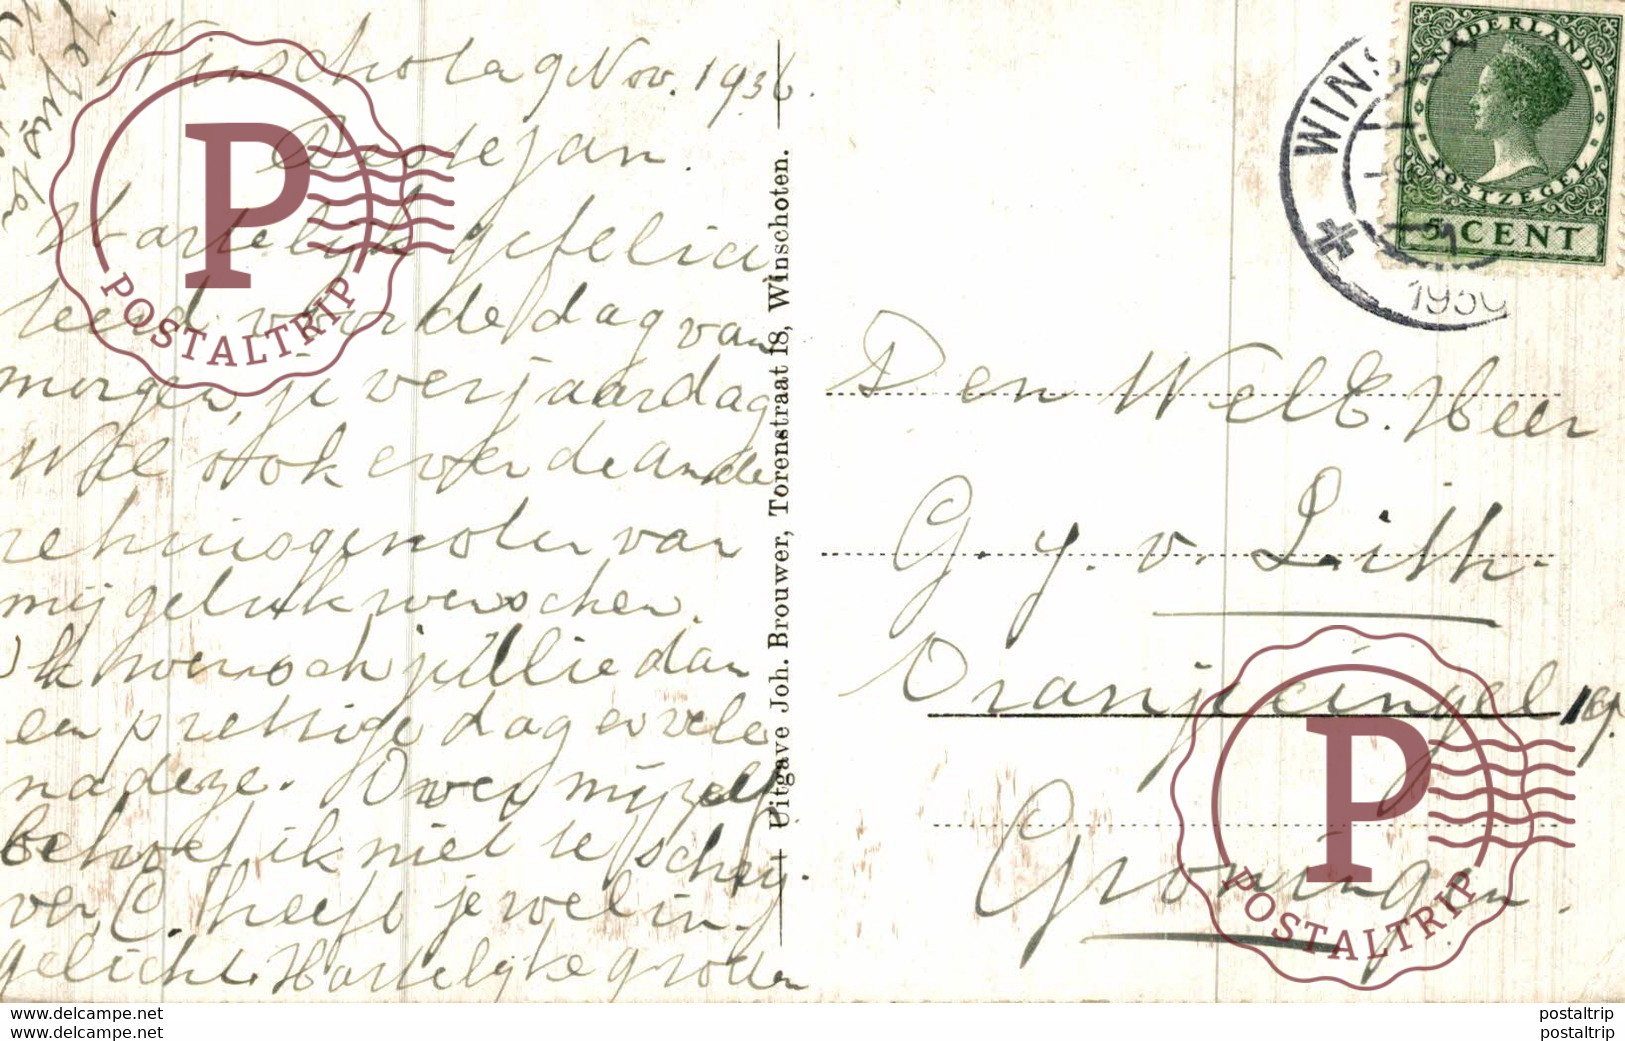 Winschoten 9 Nov. 1936.
Beste Jan.
Hartelijk gefelici
teerd voor de dag van
morgen, je verjaardag
Wil ook even de ande
re huisgenoten van
mij geluk wenschen.
Ik wensch jullie dan
een prettige dag en vele
na deze. Over mijzelf
behoef ik niet te schrij
ven, C. heeft je wel in
gelicht. Hartelijke groeten
Uitgave Joh. Brouwer, Torenstraat 18, Winschoten.
NEDERLAND
POSTZEGEL
5 CENT
WINS
Den WelE. Heer
G. J. v. Lith.
Oranjesingel 19.
Groningen.
P
POSTALTRIP
P
POSTALTRIP
www.delcampe.net
www.delcampe.net
postaltrip
postaltrip